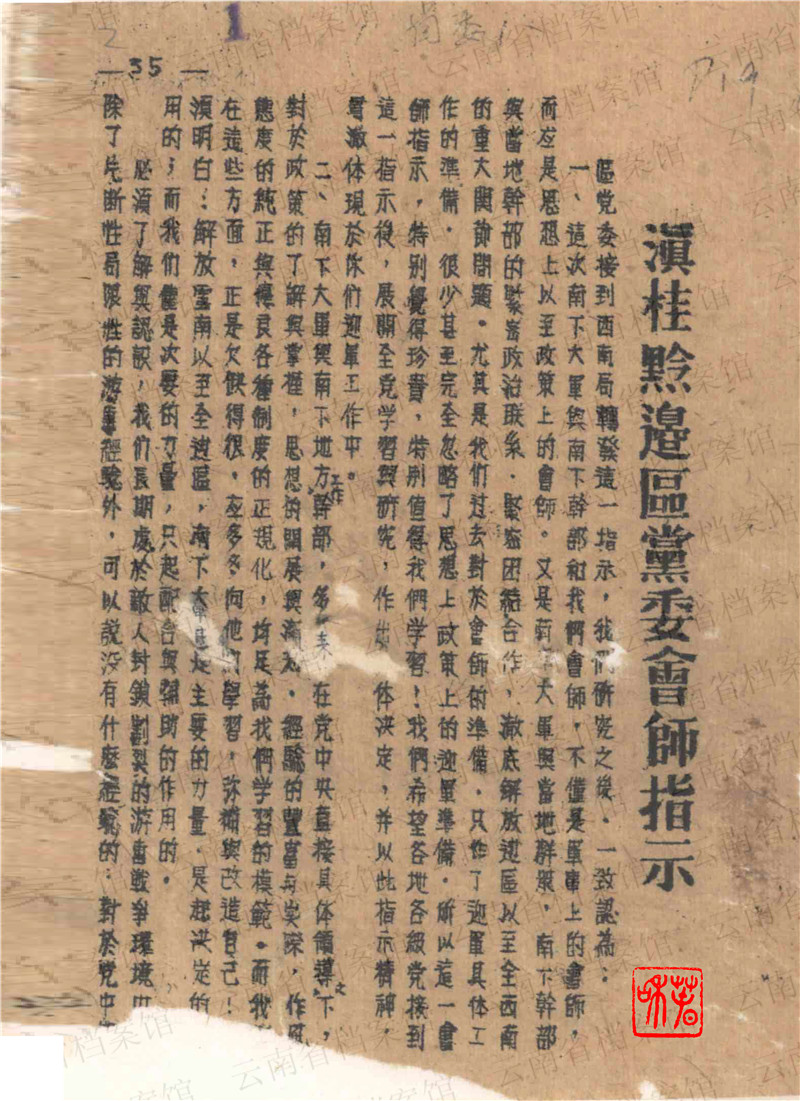 滇桂黔邊區黨委會師指示
區党委接到西南局轉發這一指示，我們研究之後，一致認為：
一、這次南下大軍與南下幹部和我們會師，不僅是軍事上的會師，
而应是思想上以至政策上的會師。又是南下大軍與當地群眾，南下幹部
與當地幹部的緊密政治联系，緊密团結合作，澈底解放边區以至全西南
的重大関節問題。尤其是我们过去對於會師的準備，只作了迎軍具体工
作的準備，很少甚至完全忽略了思想上政策上的迎軍準備。所以這一會
師指示，特别覺得珍貴，特别值得我們学習！我們希望各地各級党接到
這一指示後，展開全党学習與研究，作出 体决定，并以此指示精神，
澈体現於你们迎軍工作中。
二、南下大軍與南下地方工作幹部，多年來，在党中央直接具体領導之下，
對於政策的了解與掌握，思想的開展與 ，經驗的豐富与实際，作風
態度的純正與優良各種制度的正規化，均足為我們学習的模範。而我
在這些方面，正是欠缺得很，应多多向他們學習，弥補與改造自己！
須明白：解放雲南以至全边區，南下大軍是主要的力量，是起决定的
用的；而我们僅是次要的力量，只起配合與輔助的作用的。
必須了解與認識，我们長期處於敵人封鎖割裂的游擊戰爭環境中
除了片断性局限性的游擊經驗外，可以說没有什麼經驗的；對於党中
— 35 —
1
P.19
云南省档案馆